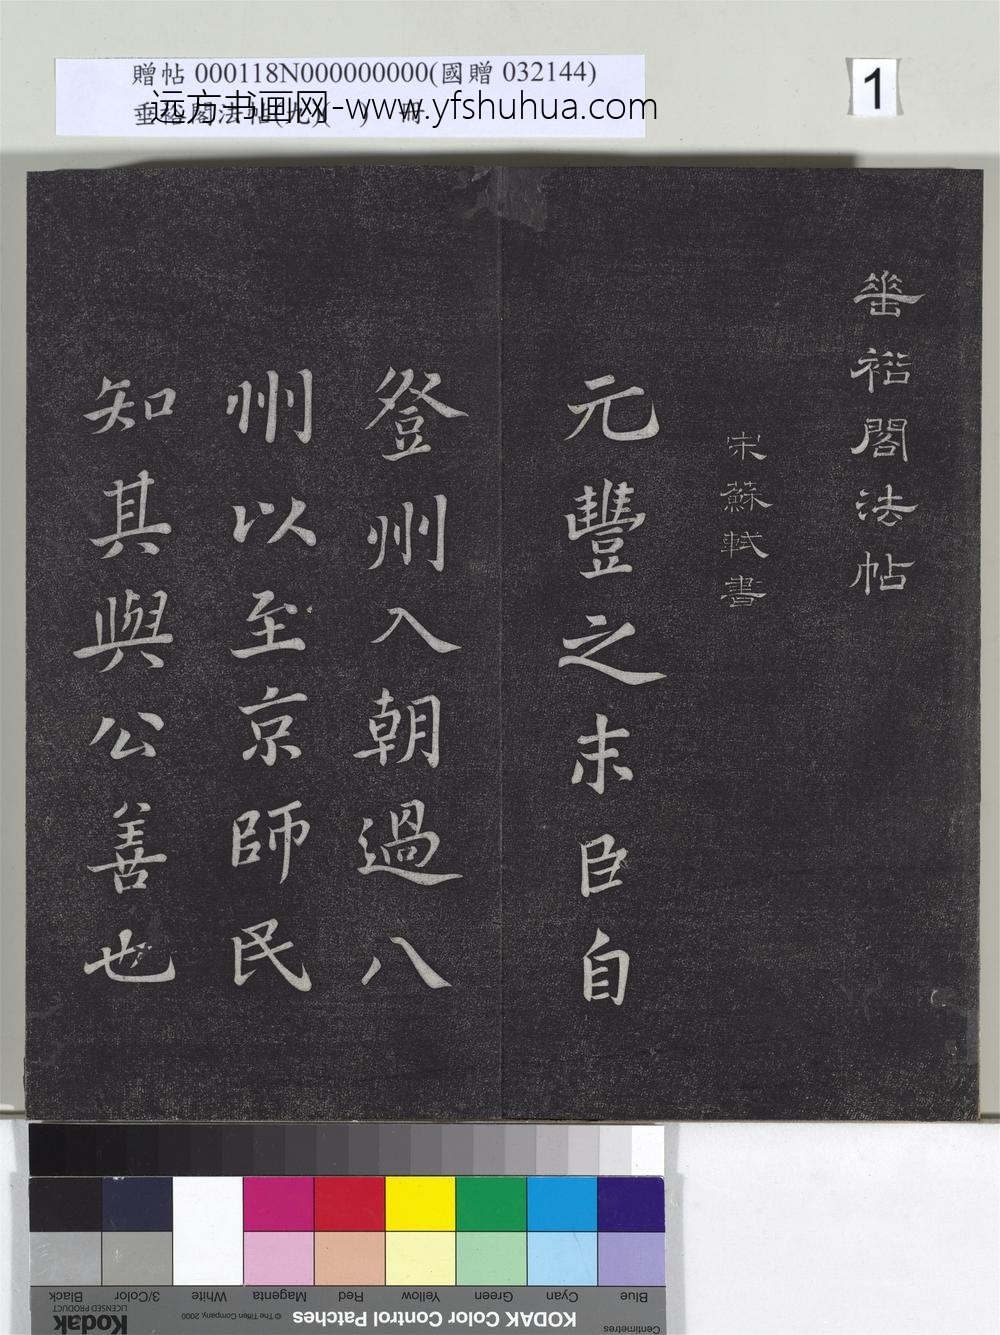 贈帖 000118N000000000(國贈 032144)
垂裕閣法帖(九)( ) 冊
远方书画网-www.yfshuhua.com
1
垂裕閣法帖
宋蘇軾書
元豐之末臣自
登州入朝過八
州以至京師民
知其與公善也
Blue Cyan Green Yellow Red Magenta White 3/Color Black
Centimetres
KODAK Color Control Patches
© The Tiffen Company, 2000
Kodak
LICENSED PRODUCT